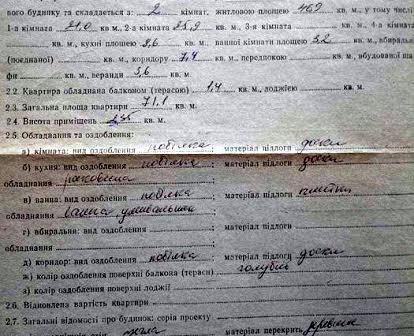 вого будинку та складається з: 2 кімнат, житловою площею 46,9 кв. м., у тому числі
1-а кімната 21,0 кв. м, 2-а кімната 25,9 кв. м, 3-я кімната кв. м, 4-а кімната
кв. м, кухні площею 8,6 кв. м, ванної кімнати площею 3,2 кв. м, вбиральні
(поєднаної) кв. м, коридору 7,4 кв. м, передпокою кв. м, вбудованої ша
фи кв. м, веранди 3,6 кв. м
2.2. Квартира обладнана балконом (терасою) 1,4 кв. м., лоджією кв. м.
2.3. Загальна площа квартири 71,1 кв. м.
2.4. Висота приміщень кв. м.
2.5. Обладнання та оздоблення:
а) кімната: вид оздоблення побілка матеріал підлоги доски
б) кухня: вид оздоблення побілка ; матеріал підлоги доски
обладнання раковина
в) ванна: вид оздоблення побілка ; матеріал підлоги плитка
обладнання ванна умивальник
г) вбиральня: вид оздоблення ; матеріал підлоги
обладнання
д) коридор: вид оздоблення побілка матеріал підлоги доски
ж) колір оздоблення поверхні балкона (тераси) голубий
з) колір оздоблення поверхні лоджії
2.6. Відновлена вартість квартири
2.7. Загальні відомості про будинок: серія проекту
матеріал перекрить